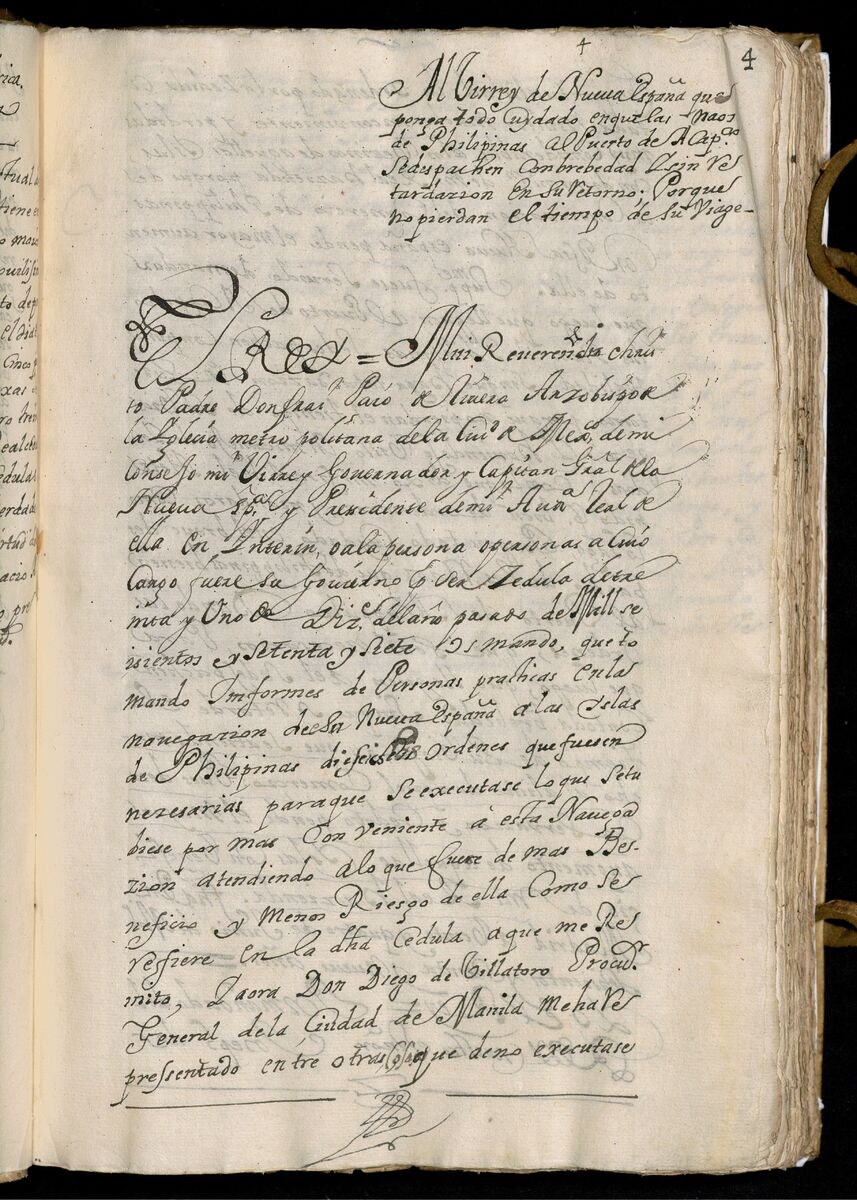 4
4
Al Virrey de Nueva España que
ponga todo Cuydado enquelas Naos
de Philipinas al Puerto de Acap.co
Sedespachen Conbrebedad y sin Re
tardazion En Su Retorno; Porque
no pierdan el tiempo de Su Viage-
El Rey = Mui Reverendo in christ
to Padre Don fran.co Paio de Rivera Arzobispo de
la Yglecia metropolitana dela Ciu.d de Mex.co demi
Consejo mi Virrey Governador y Capitan Gral dela
Nueva Sp.a y Presidente demi Aun.a Real de
ella en Ynterin, o ala persona opersonas a Cuio
Cargo fuere su Govierno por Zedula detre
inta y Uno de Diz.e delaño pasado de Mill se
isientos y Setenta y Siete os mando, que to
mando Imformes de Personas practicas en las
navegazion de Nueva España a las Yslas
de Philipinas dieseis las ordenes que fuesen
nezesarias paraque Se executase lo que Setu
biese por mas Conveniente à esta Navega
zion atendiendo alo que fuere de mas Be-
neficio y Menos Riesgo de ella Como Se
refiere en la dha Cedula aque me Re
mito, Yaora Don Diego de Villatoro Procu.r
General dela Ciudad de Manila meha Re
pressentado entre otras cosas que deno executase